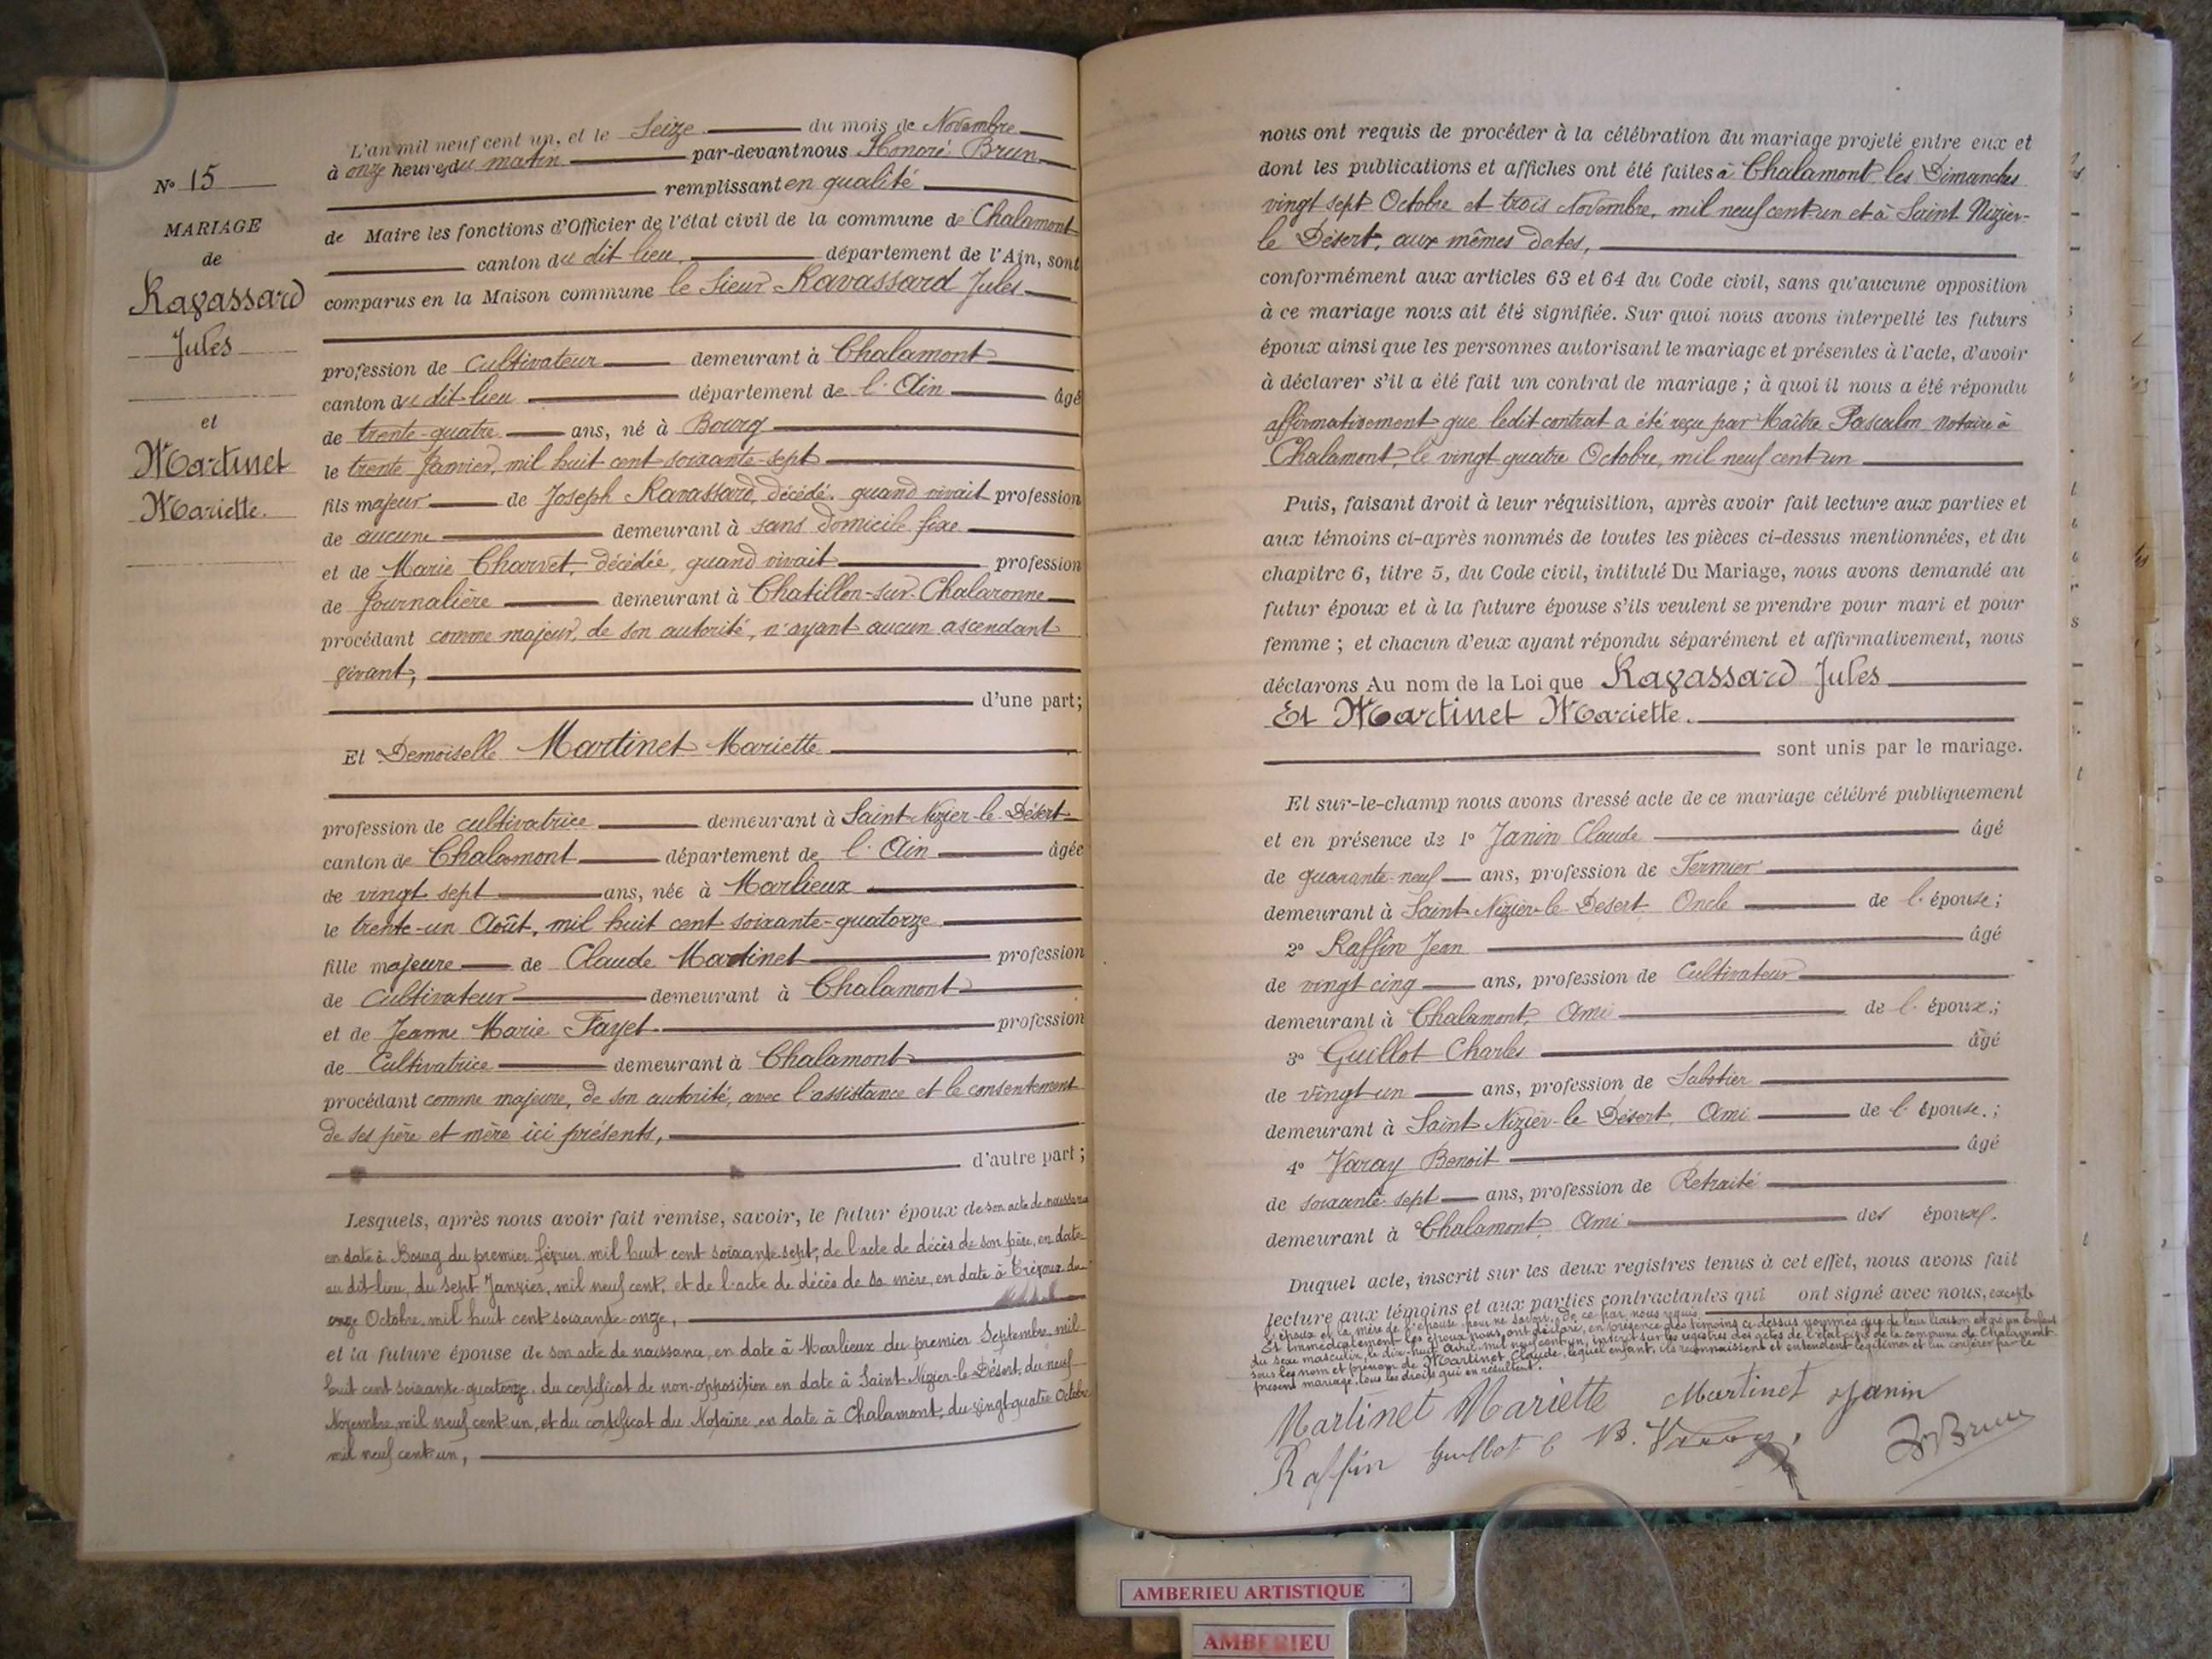 N° 15
MARIAGE
de
Ravassard
Jules
et
Martinet
Mariette.
L'an mil neuf cent un, et le Seize du mois de Novembre
à onze heures du matin par-devant nous Honoré Brun
remplissant en qualité
de Maire les fonctions d'Officier de l'état civil de la commune de Chalamont
canton du dit lieu, département de l'Ain, sont
comparus en la Maison commune le Sieur Ravassard Jules
profession de Cultivateur demeurant à Chalamont
canton du dit-lieu département de l'Ain âgé
de trente-quatre ans, né à Bourg
le trente Janvier, mil huit cent soixante-sept
fils majeur de Joseph Ravassard, décédé, quand vivait profession
de aucune demeurant à sans domicile fixe
et de Marie Charvet, décédée, quand vivait profession
de Journalière demeurant à Chatillon-sur-Chalaronne
procédant comme majeur, de son autorité, n'ayant aucun ascendant
vivant,
d'une part;
Et Demoiselle Martinet Mariette
profession de cultivatrice demeurant à Saint-Nizier-le-Désert
canton de Chalamont département de l'Ain âgée
de vingt sept ans, née à Marlieux
le trente-un Août, mil huit cent soixante-quatorze
fille majeure de Claude Martinet profession
de Cultivateur demeurant à Chalamont
et de Jeanne Marie Fayet profession
de Cultivatrice demeurant à Chalamont
procédant comme majeure, de son autorité, avec l'assistance et le consentement
de ses père et mère ici présents,
d'autre part;
Lesquels, après nous avoir fait remise, savoir, le futur époux de son acte de naissance
en date à Bourg du premier février mil huit cent soixante-sept, de l'acte de décès de son père, en date
au dit-lieu, du sept Janvier, mil neuf cent, et de l'acte de décès de sa mère, en date à Trévoux du
onze Octobre, mil huit cent soixante-onze,
et la future épouse de son acte de naissance, en date à Marlieux du premier Septembre mil
huit cent soixante-quatorze, du certificat de non-opposition en date à Saint-Nizier-le-Désert, du neuf
Novembre, mil neuf cent un, et du certificat du Notaire, en date à Chalamont, du vingt-quatre Octobre
mil neuf cent un,
nous ont requis de procéder à la célébration du mariage projeté entre eux et
dont les publications et affiches ont été faites à Chalamont, les Dimanches
vingt sept Octobre et trois Novembre, mil neuf cent un et à Saint Nizier-
le Désert, aux mêmes dates,
conformément aux articles 63 et 64 du Code civil, sans qu'aucune opposition
à ce mariage nous ait été signifiée. Sur quoi nous avons interpellé les futurs
époux ainsi que les personnes autorisant le mariage et présentes à l'acte, d'avoir
à déclarer s'il a été fait un contrat de mariage; à quoi il nous a été répondu
affirmativement que ledit contrat a été reçu par Maître Pascalon notaire à
Chalamont, le vingt quatre Octobre, mil neuf cent un
Puis, faisant droit à leur réquisition, après avoir fait lecture aux parties et
aux témoins ci-après nommés de toutes les pièces ci-dessus mentionnées, et du
chapitre 6, titre 5, du Code civil, intitulé Du Mariage, nous avons demandé au
futur époux et à la future épouse s'ils veulent se prendre pour mari et pour
femme; et chacun d'eux ayant répondu séparément et affirmativement, nous
déclarons Au nom de la Loi que Ravassard Jules
Et Martinet Mariette.
sont unis par le mariage.
Et sur-le-champ nous avons dressé acte de ce mariage célébré publiquement
et en présence de 1° Janin Claude âgé
de quarante-neuf ans, profession de Fermier
demeurant à Saint-Nizier-le Désert, Oncle de l'épouse;
2° Raffin Jean âgé
de vingt cinq ans, profession de Cultivateur
demeurant à Chalamont, Ami de l'époux.;
3° Guillot Charles âgé
de vingt un ans, profession de Sabotier
demeurant à Saint Nizier-le Désert, Ami de l'épouse.;
4° Varay Benoit âgé
de soixante-sept ans, profession de Retraité
demeurant à Chalamont, Ami des époux.
Duquel acte, inscrit sur les deux registres tenus à cet effet, nous avons fait
lecture aux témoins et aux parties contractantes qui ont signé avec nous, excepté
l'époux et la mère de l'épouse pour ne savoir, de ce par nous requis.
Et immédiatement les époux nous ont déclaré, en présence des témoins ci-dessus nommés que de leur liaison est né un Enfant
du sexe masculin, le dix-huit Avril mil neuf cent un, inscrit sur les registres des actes de l'état civil de la commune de Chalamont
sous les nom et prénom de Martinet Claude, lequel enfant, ils reconnaissent et entendent légitimer et lui conférer par le
présent mariage, tous les droits qui en résultent.
Martinet Mariette Martinet Janin
Raffin Guillot C B. Varay HBrun
AMBERIEU ARTISTIQUE
AMBERIEU